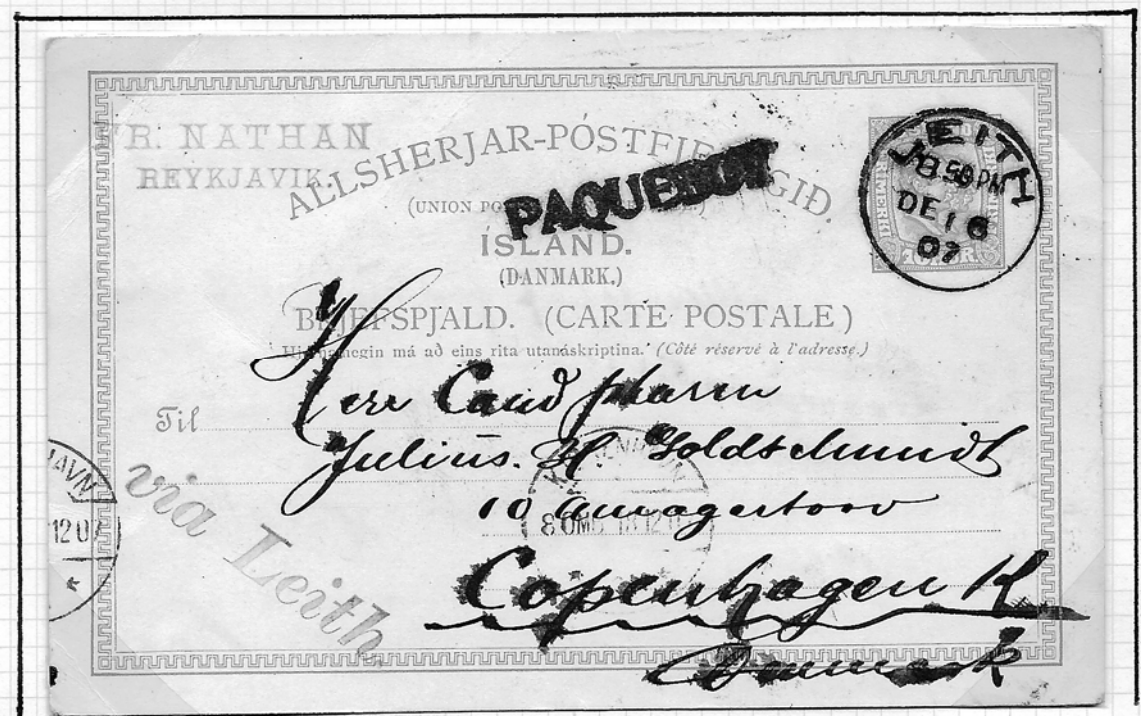 FR. NATHAN
REYKJAVIK.
ALLSHERJAR-PÓSTFJE GIÐ.
PAQUEBOT
(UNION
ÍSLAND.
(DANMARK.)
BRJEFSPJALD. (CARTE POSTALE)
Hjernamegin má að eins rita utanáskriptina. (Côté réservé à l'adresse.)
LEITH
8.50 PM
DE 16
07
Til
Herr Cand pharm
Julius. H. Goldschmidt
10 Amagertorv
Copenhagen K
Danmark
via Leith
HAVN
12 07
8 OMB 18 12 0